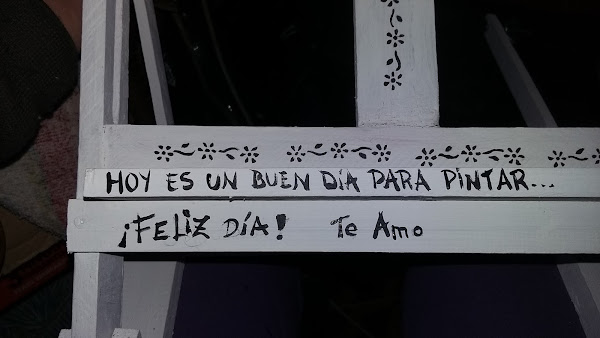 HOY ES UN BUEN DÍA PARA PINTAR...
¡FELIZ DÍA! Te Amo